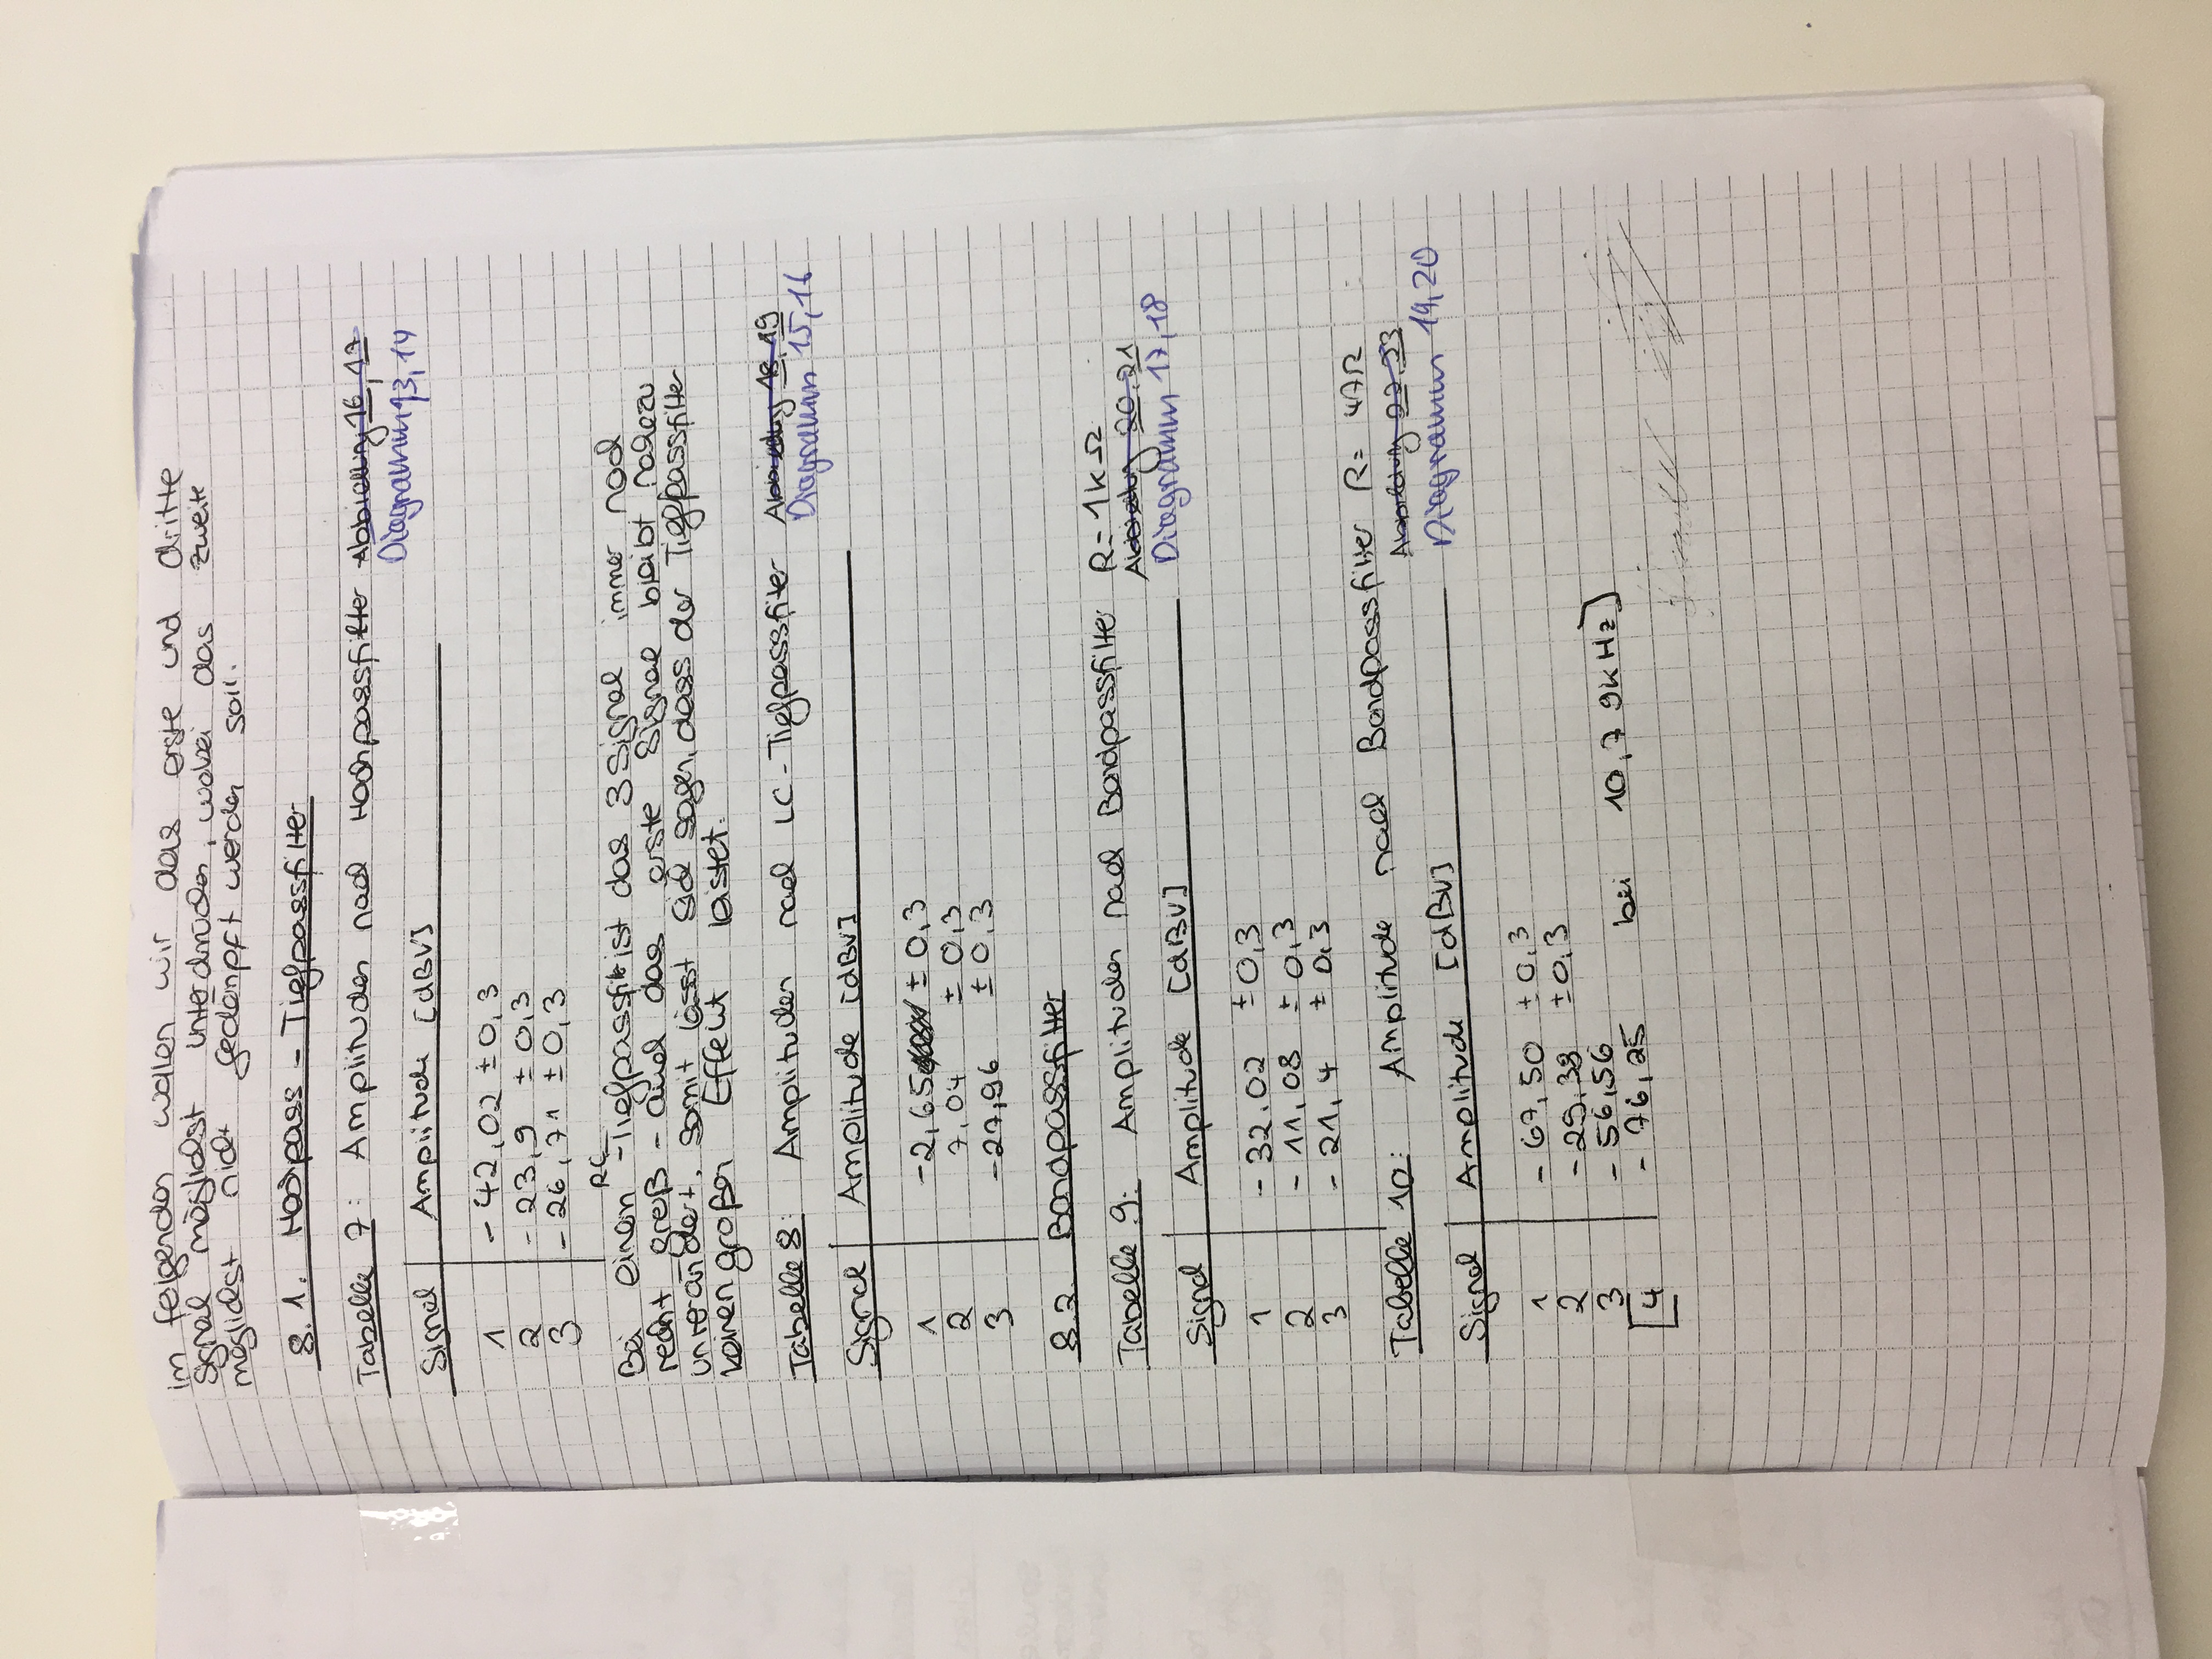 im folgenden wollen wir das erste und dritte
Signal möglichst unterdrücken, wobei das zweite
möglichst nicht gedämpft werden soll.
8.1. Hochpass - Tiefpassfilter
Tabelle 7: Amplituden nach Hochpassfilter Abbildung 16, 17
Diagramm 13, 14
Signal Amplitude [dBV]
1 - 42,02 ± 0,3
2 - 23,9 ± 0,3
3 - 26,71 ± 0,3
RC
Bei einem -Tiefpassfilt ist das 3 Signal immer noch
recht groß - auch das erste Signal bleibt nahezu
unverändert. somit lässt sich sagen, dass der Tiefpassfilter
keinen großen Effekt leistet.
Tabelle 8: Amplituden nach LC - Tiefpassfilter Abbildung 18, 19
Diagramm 15, 16
Signal Amplitude [dBV]
1 -2,65 ± 0,3
2 7,04 ± 0,3
3 -27,96 ± 0,3
8.2. Bandpassfilter
Tabelle 9: Amplituden nach Bandpassfilter R= 1kΩ
Abbildung 20, 21
Diagramm 17, 18
Signal Amplitude [dBV]
1 - 32.02 ± 0,3
2 - 11,08 ± 0,3
3 - 21,4 ± 0,3
Tabelle 10: Amplitude nach Bandpassfilter R= 47Ω
Abbildung 22, 23
Diagramm 19, 20
Signal Amplitude [dBV]
1 - 67,50 ± 0,3
2 - 29,38 ± 0,3
3 - 56,56
[4 - 76,25 bei 10,79kHz]